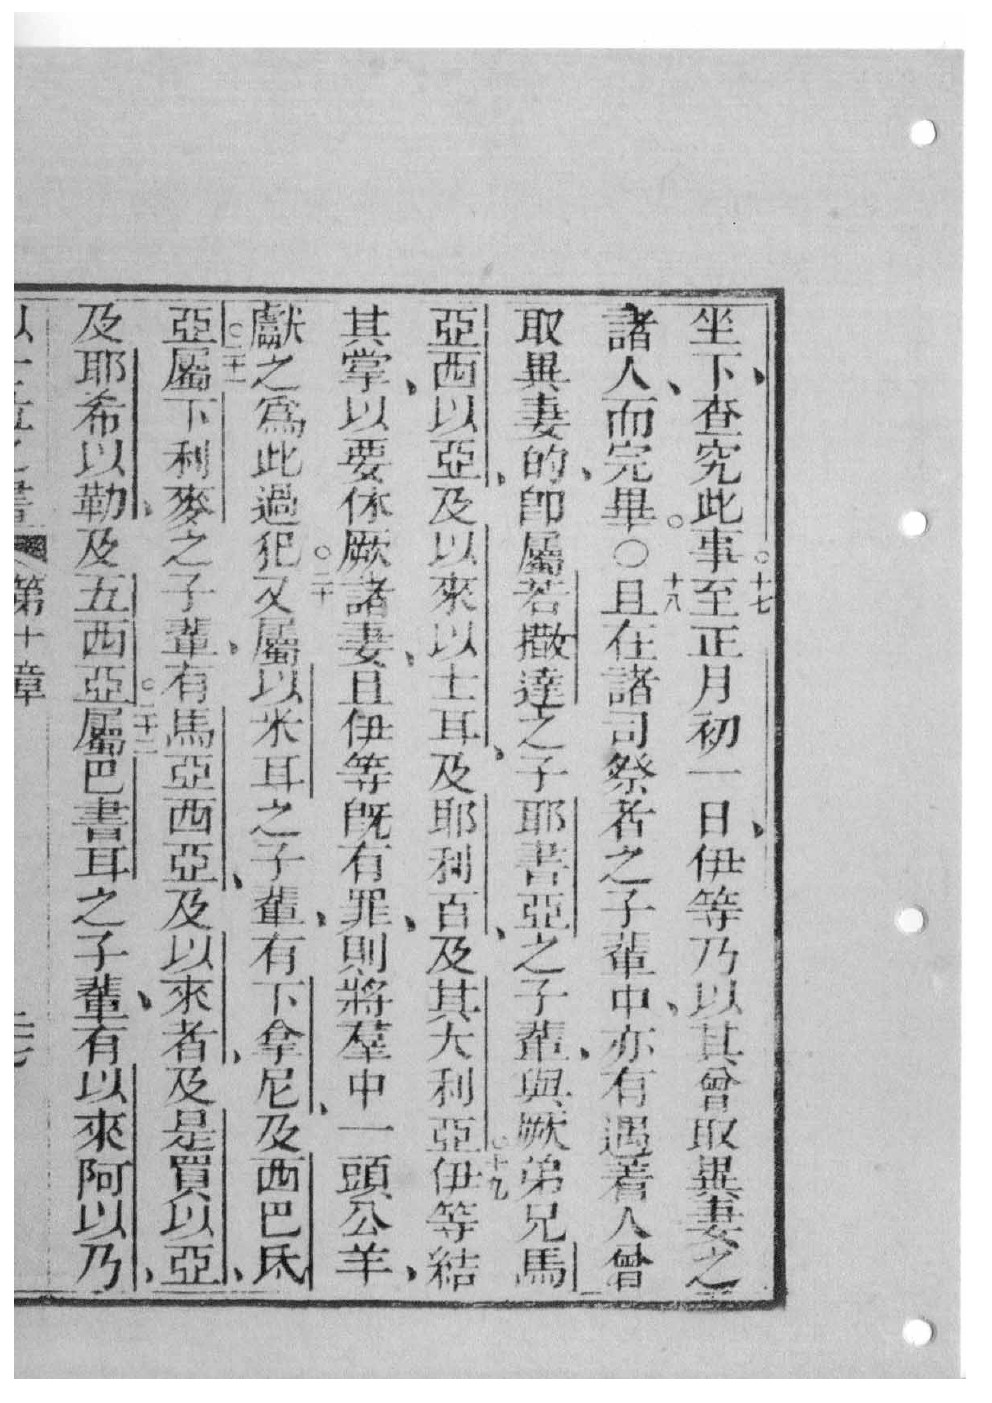 坐下、查究此事。十七至正月初一日、伊等乃以其曾取異妻之
諸人、而完畢。○十八且在諸司祭者之子輩中、亦有遇着人曾
取異妻的、卽屬若撒達之子耶書亞之子輩、與厥弟兄馬
亞西以亞、及以來以士耳、及耶利百、及其大利亞。十九伊等結
其掌、以要休厥諸妻、且伊等旣有罪、則將羣中一頭公羊、
獻之爲此過犯。二十又屬以米耳之子輩、有下拿尼、及西巴氐
亞。二十一屬下利麥之子輩、有馬亞西亞、及以來者、及是買以亞、
及耶希以勒、及五西亞。二十二屬巴書耳之子輩、有以來阿以乃、
第十章